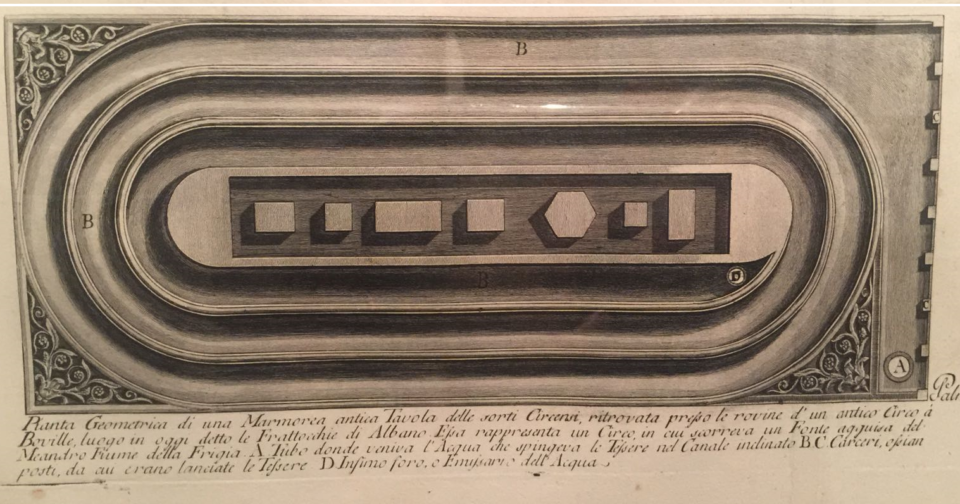 B
B
B
A
Pal
Pianta Geometrica di una Marmorea antica Tavola delle sorti Circensi, ritrovata presso le rovine d'un antico Circo à
Boville, luogo in oggi detto le Frattochie di Albano. Essa rappresenta un Circo, in cui scorreva un Fonte agguisa del
Meandro Fiume della Frigia. A Tubo donde veniva l'Acqua che spingeva le Tessere nel Canale inclinato B C Carceri, ossian
posti, da cui erano lanciate le Tessere D Infimo foro, o Emissario dell'Acqua